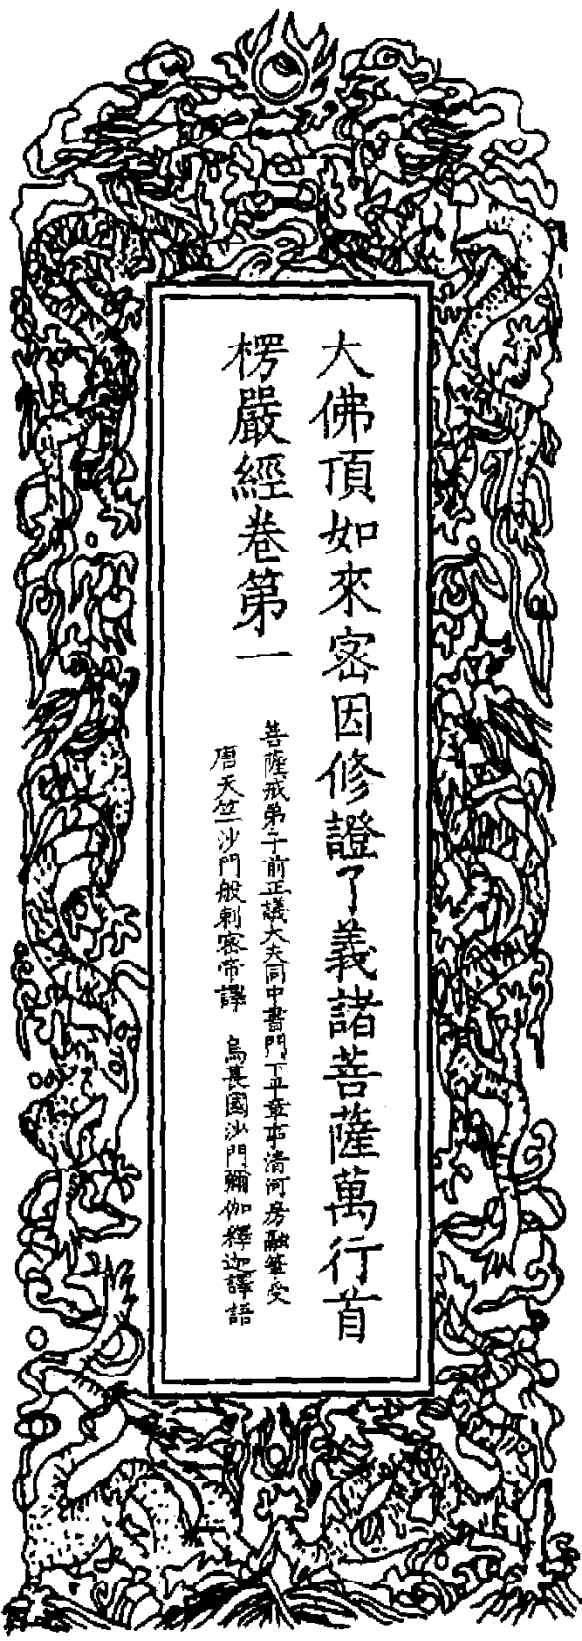 大佛頂如來密因修證了義諸菩薩萬行首
楞嚴經卷第一
菩薩戒弟子前正議大夫同中書門下平章事清河房融筆受
唐天竺沙門般剌密帝譯 烏萇國沙門彌伽釋迦譯語